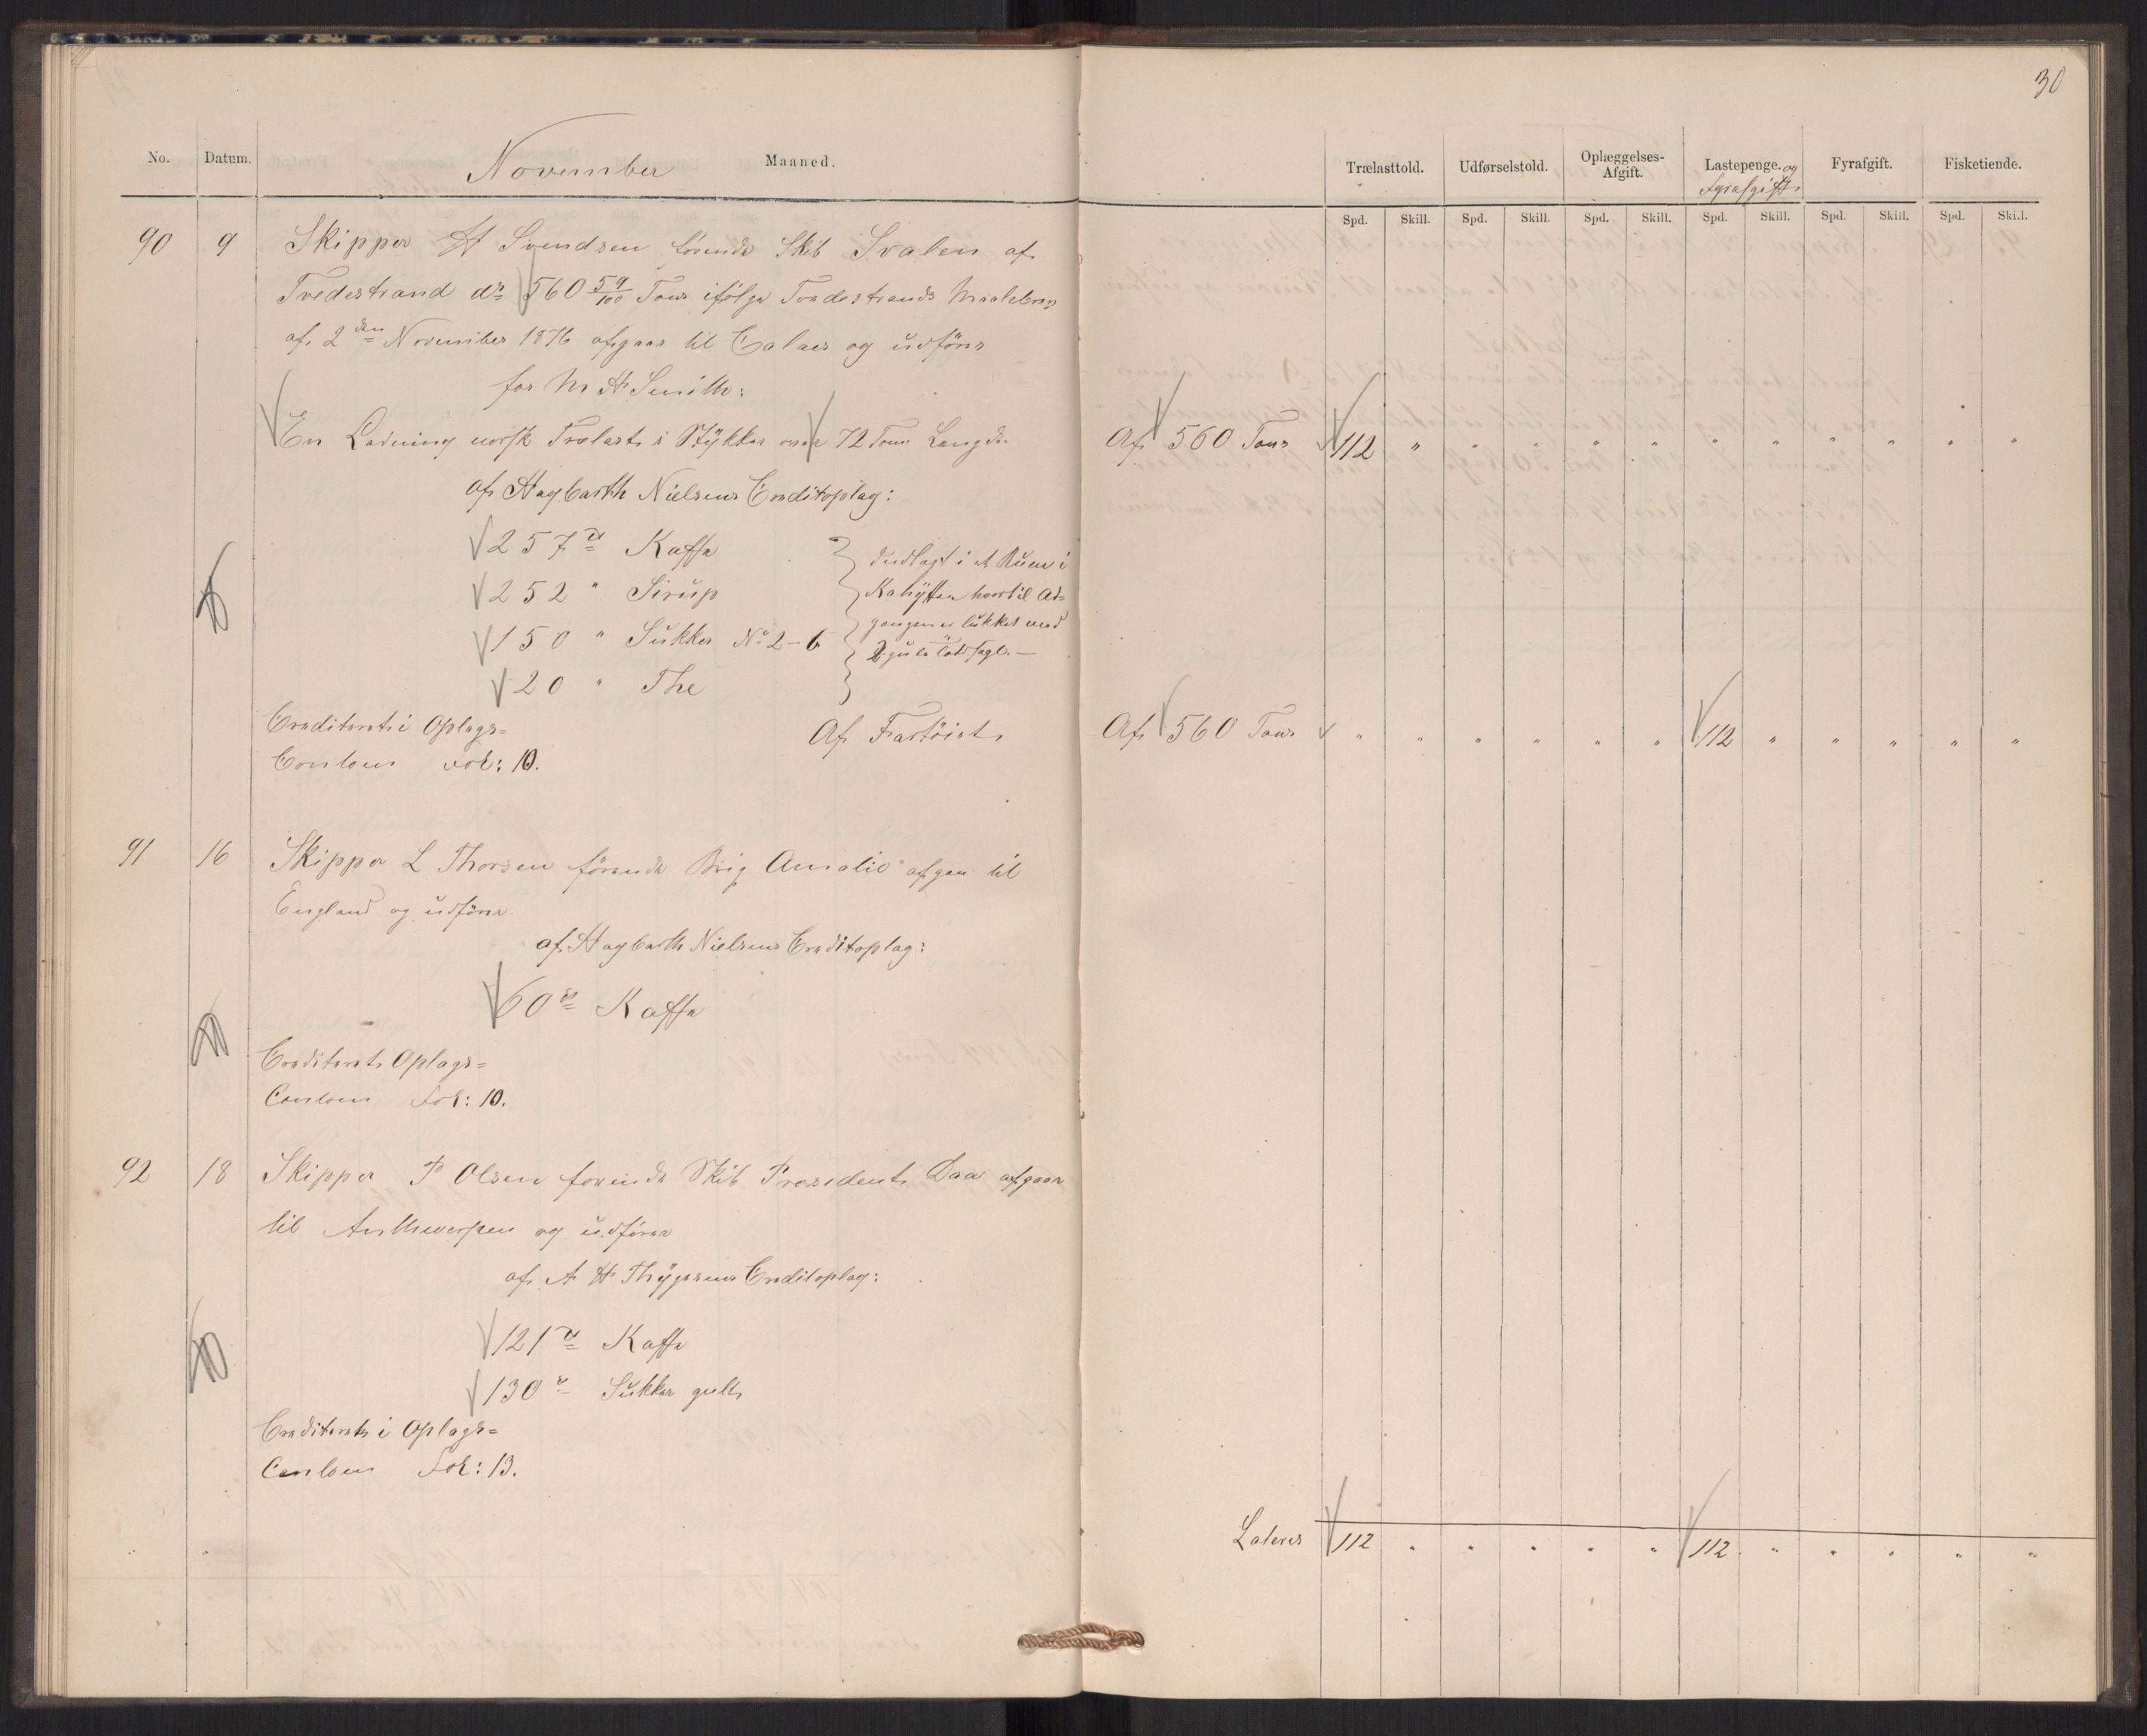 30
No. Datum. November Maaned.
Trælasttold. Udførselstold. Oplæggelses-Afgift. Lastepenge. og Fyrafgift Fyrafgift. Fisketiende.
Spd. Skill. Spd. Skill. Spd. Skill. Spd. Skill. Spd. Skill. Spd. Skill.
90 9 Skipper H Svendsen förende Skib Svalen af
Tvedestrand dr. 560 59/100 Tons ifölge Tvedestrands Maalebrev
af 2den November 1876 afgaar til Calais og udförer
for M H Smith:
En Ladning norsk Trælast i Stykker over 12 Toms Længde Af 560 Tons 112 " " " " " " " " " " "
af Hagbarth Nielsens Creditoplag:
257 ℔ Kaffe
252 " Sirup
150 " Sukker No 2-6
20 " The
Indlagt i et Rum i
Kahytten hvortil Ad=
gangen er lukket med
2 gule
Crediteret i Oplags= Af Fartöiet Af 560 Tons " " " " " " 112 " " " " "
Contoen Fol: 10.
91 16 Skipper L Thorsen förende Brig Amalie afgaar til
England og udförer
af Hagbarth Nielsens Creditoplag:
60 ℔ Kaffe
Crediteret Oplags=
Contoen Fol: 10.
92 18 Skipper P Olsen förende Skib President Daa afgaar
til Anthwerpen og udförer
af A H Thygesens Creditoplag:
121 ℔ Kaffe
130 ℔ Sukker guelt
Crediteret i Oplags=
Contoen Fol: 13.
Lateres 112 " " " " " 112 " " " " "